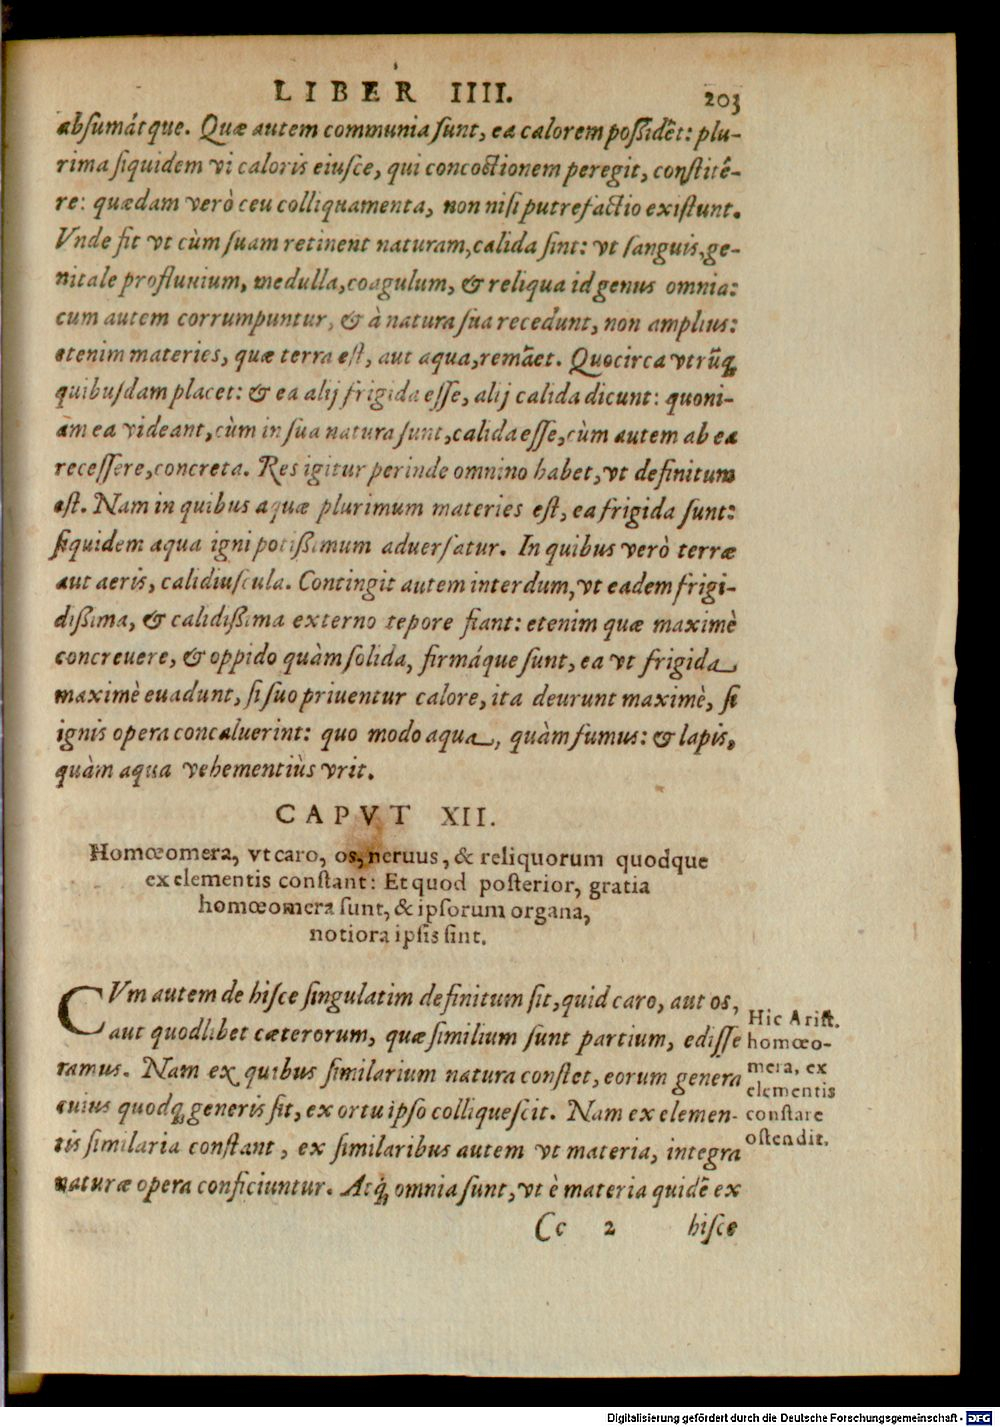 LIBER IIII. 203
absumátque. Quæ autem communia sunt, ea calorem poßidēt: plu-
rima siquidem vi caloris eiusce, qui concoctionem peregit, constitê-
re: quædam verò ceu colliquamenta, non nisi putrefactio existunt.
Vnde fit vt cùm suam retinent naturam, calida sint: vt sanguis, ge-
nitale profluuium, medulla, coagulum, & reliqua id genus omnia:
cum autem corrumpuntur, & à natura sua recedunt, non amplius:
etenim materies, quæ terra est, aut aqua, remāet. Quocirca vtrūq;
quibusdam placet: & ea alij frigida esse, alij calida dicunt: quoni-
am ea videant, cùm in sua natura sunt, calida esse, cùm autem ab ea
recessere, concreta. Res igitur perinde omnino habet, vt definitum
est. Nam in quibus aquæ plurimum materies est, ea frigida sunt:
siquidem aqua igni potißimum aduersatur. In quibus verò terræ
aut aeris, calidiuscula. Contingit autem interdum, vt eadem frigi-
dißima, & calidißima externo tepore fiant: etenim quæ maximè
concreuere, & oppido quàm solida, firmáque sunt, ea vt frigida
maximè euadunt, si suo priuentur calore, ita deurunt maximè, si
ignis opera concaluerint: quo modo aqua, quàm fumus: & lapis,
quàm aqua vehementiùs vrit.
CAPVT XII.
Homœomera, vt caro, os, neruus, & reliquorum quodque
ex elementis constant: Et quod posterior, gratia
homœomera sunt, & ipsorum organa,
notiora ipsis sint.
CVm autem de hisce singulatim definitum sit, quid caro, aut os,
aut quodlibet cæterorum, quæ similium sunt partium, edisse
ramus. Nam ex quibus similarium natura constet, eorum genera
cuius quodq; generis sit, ex ortu ipso colliquescit. Nam ex elemen-
tis similaria constant, ex similaribus autem vt materia, integra
naturæ opera conficiuntur. Atq; omnia sunt, vt è materia quidē ex
Hic Arist.
homœo-
mera, ex
elementis
constare
ostendit.
Cc 2 hisce
Digitalisierung gefördert durch die Deutsche Forschungsgemeinschaft - DFG